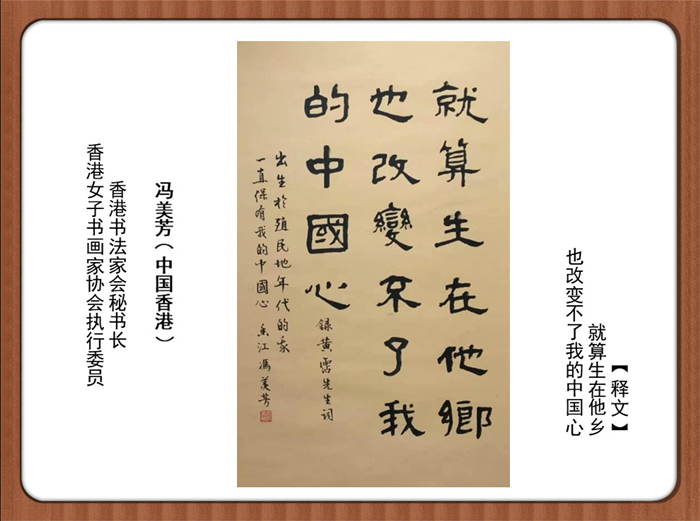 【释文】
就算生在他乡
也改变不了我的中国心
就算生在他鄉
也改變不了我
的中國心
録黄霑先生词
出生於殖民地年代的我
一直保有我的中國心 香江 馮美芳
冯美芳（中国香港）
香港书法家会秘书长
香港女子书画家协会执行委员